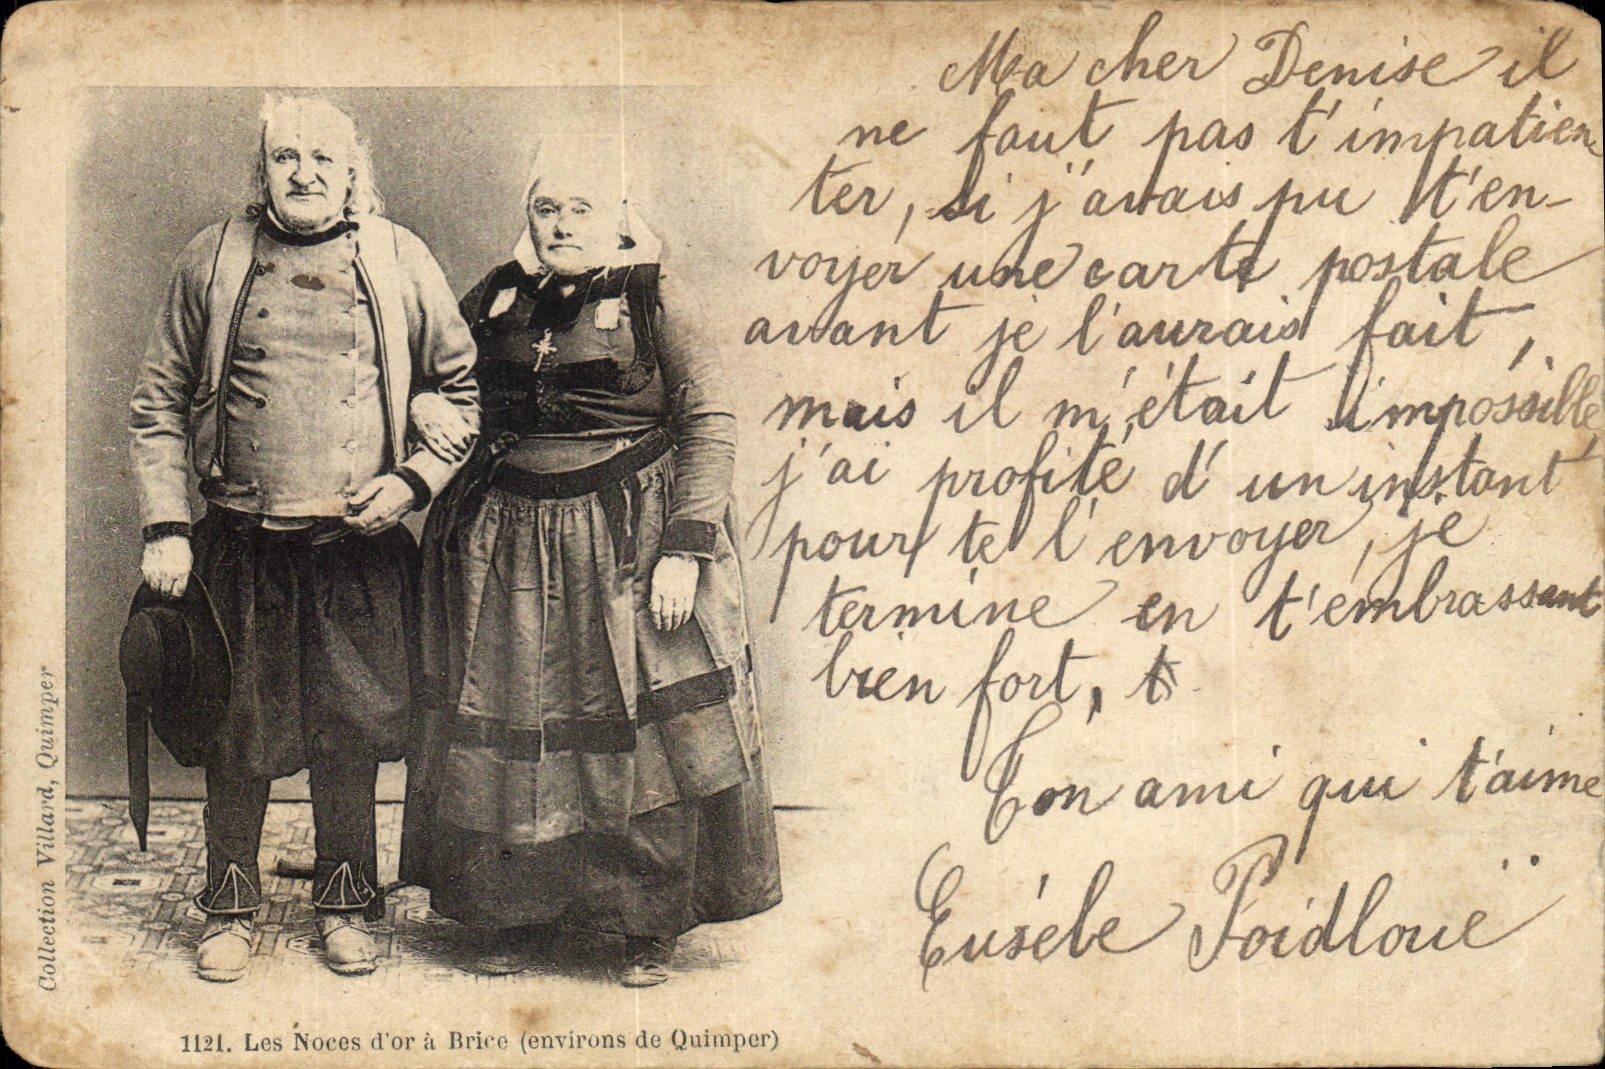 Ma cher Denise il
ne faut pas t'impatien-
ter, si j'avais pu t'en-
voyer une carte postale
avant je l'aurais fait,
mais il m'était impossible,
j'ai profité d'un instant
pour te l'envoyer, je
termine en t'embrassant
bien fort, t
Ton ami qui t'aime
Eusèbe
Collection Villard, Quimper
1121. Les Noces d'or à Brice (environs de Quimper)